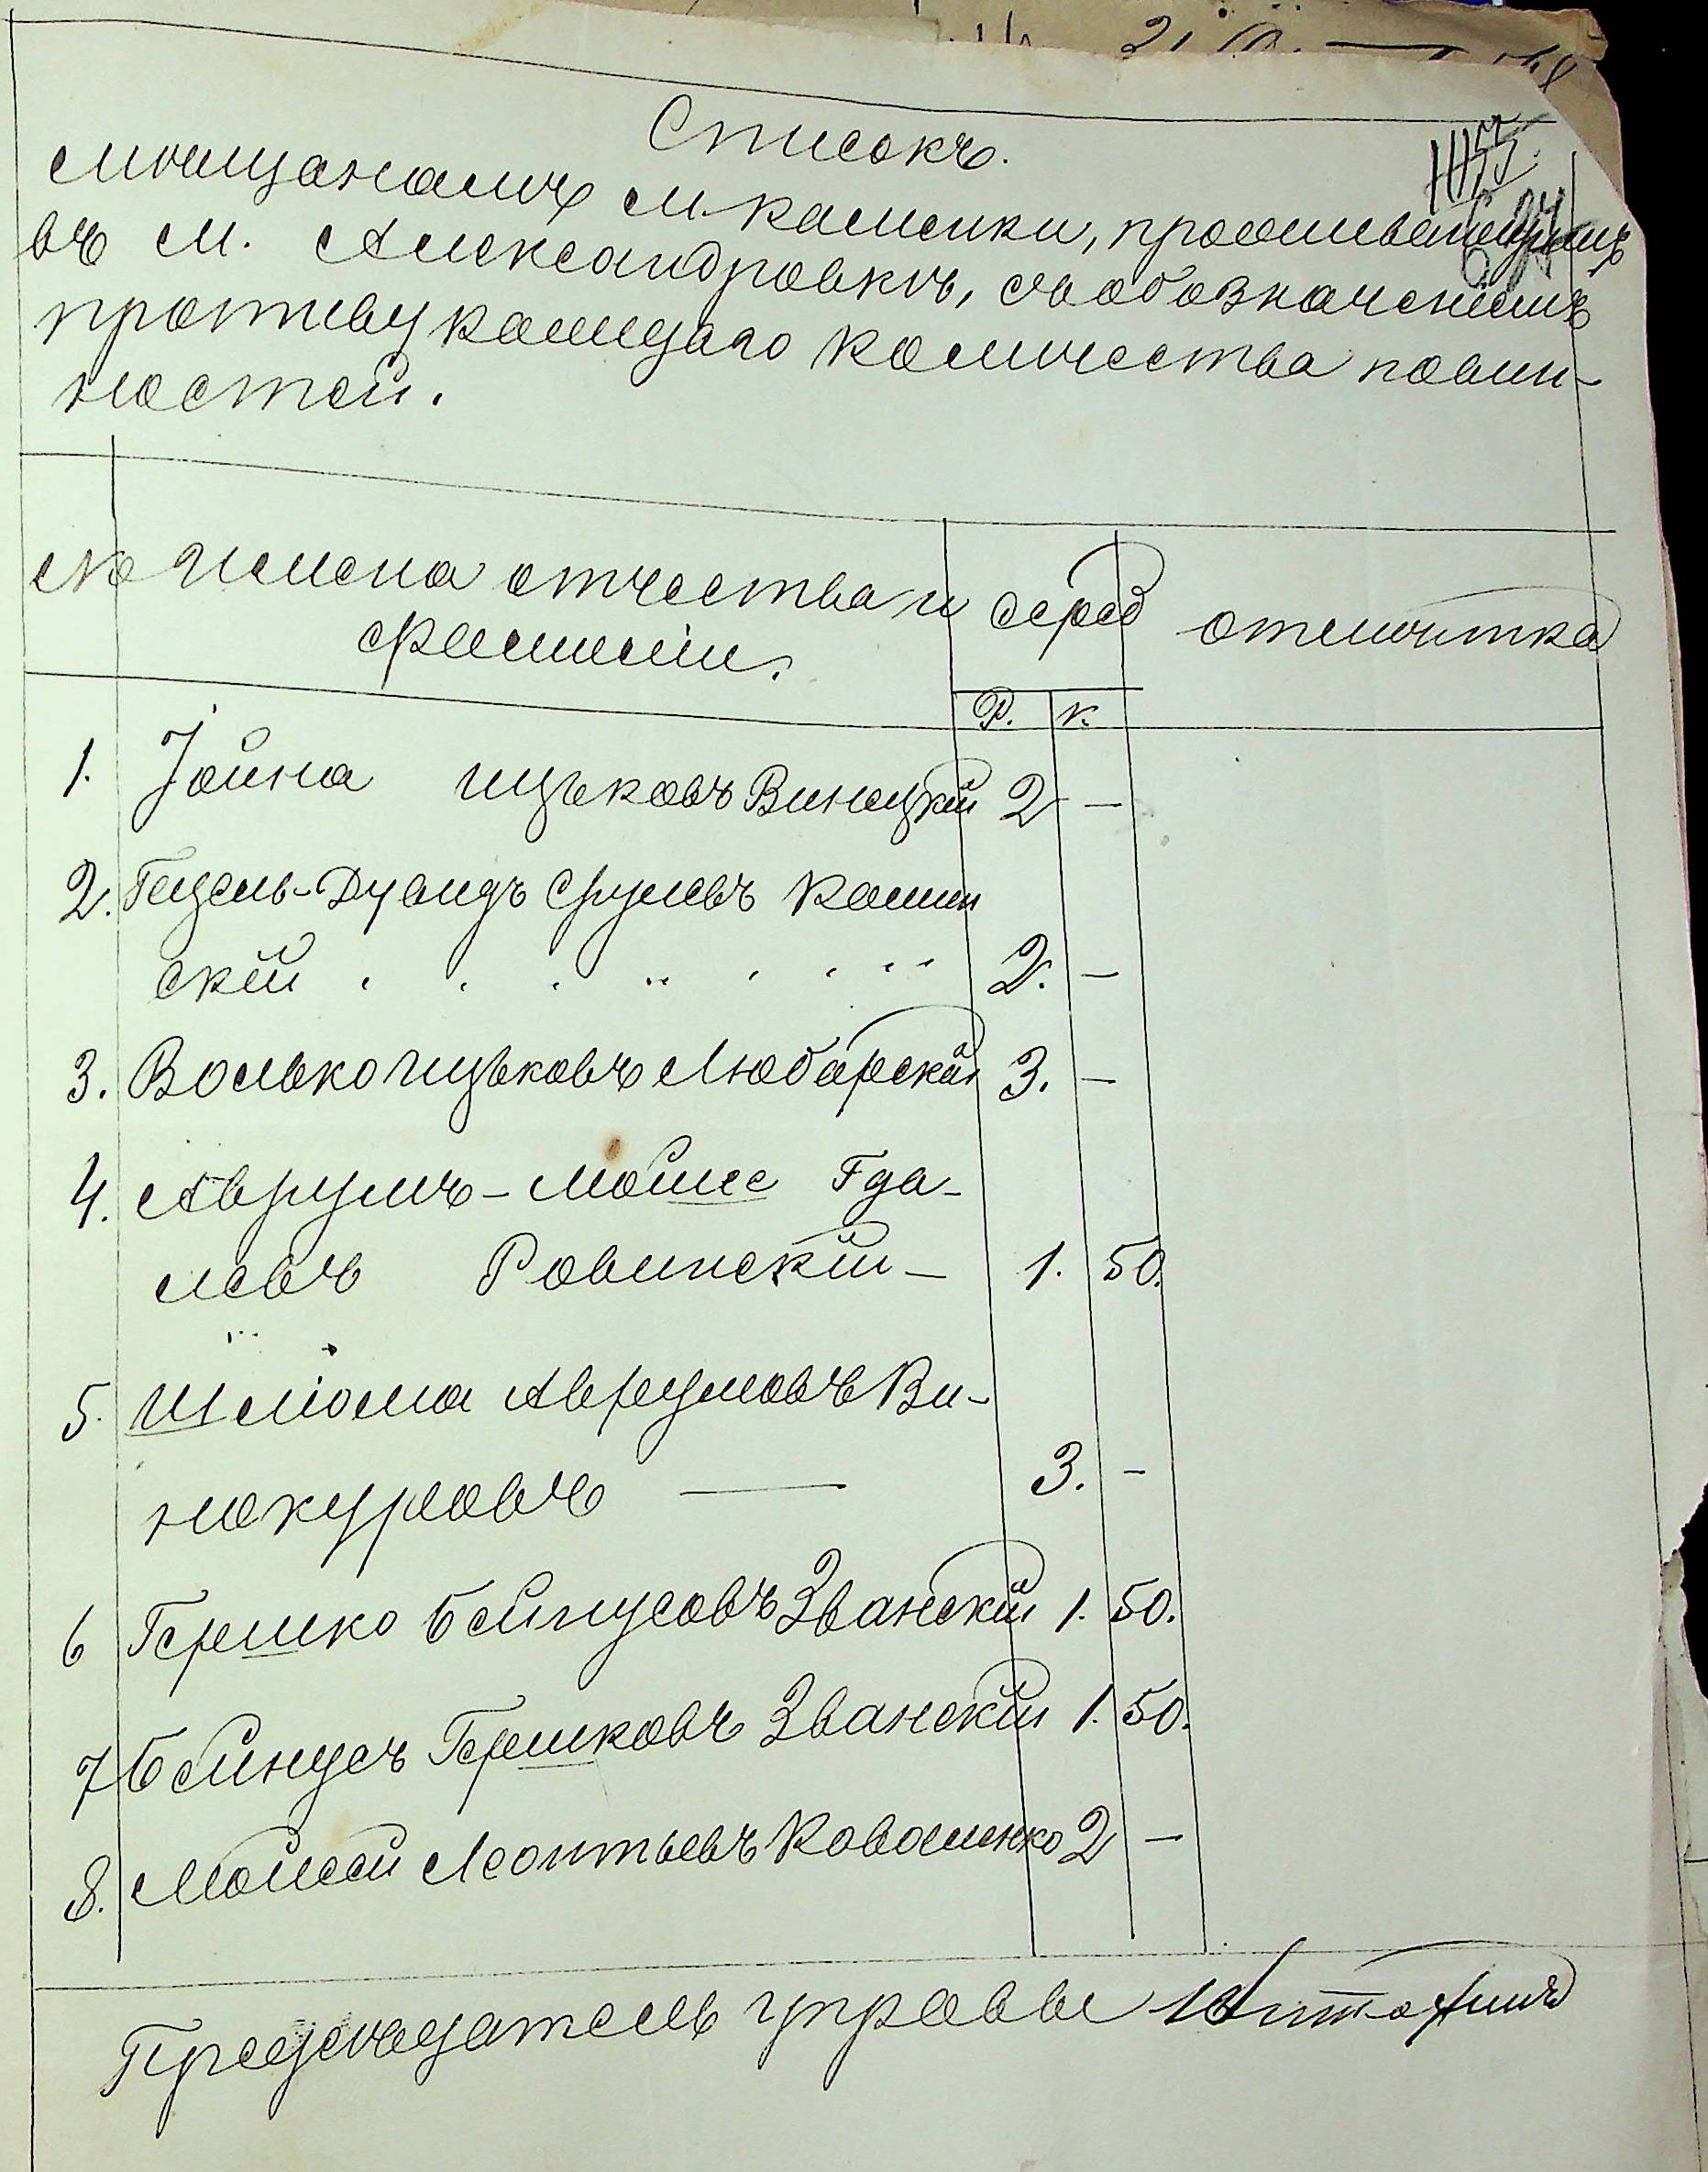 Списокъ.
мѣщанамъ м. Каменки, проживающимъ
въ м. Александровкѣ, съ обозначеніемъ
противу каждаго количества повин-
ностей.
№ Имена отчества и сереб отмѣтка
фамиліи.
Р. К.
1. Іойна Ицьковъ Виницкій 2 —
2. Гецель-Дувидъ Срулевъ Камин
скій . . . . . . . . 2. —
3. Волько Ицьковъ Любарскій 3. —
4. Аврумъ-Мойше Гда-
левъ Ровинскій — 1. 50.
5. Шліома Аврумовъ Ви-
нокуровъ — 3. —
6 Гершко Бейнусовъ Званскій 1. 50.
7 Бейнусъ Гершковъ Званскій 1. 50.
8. Мойсей Леонтьевъ Коваленко 2 —
Предсѣдатель управы